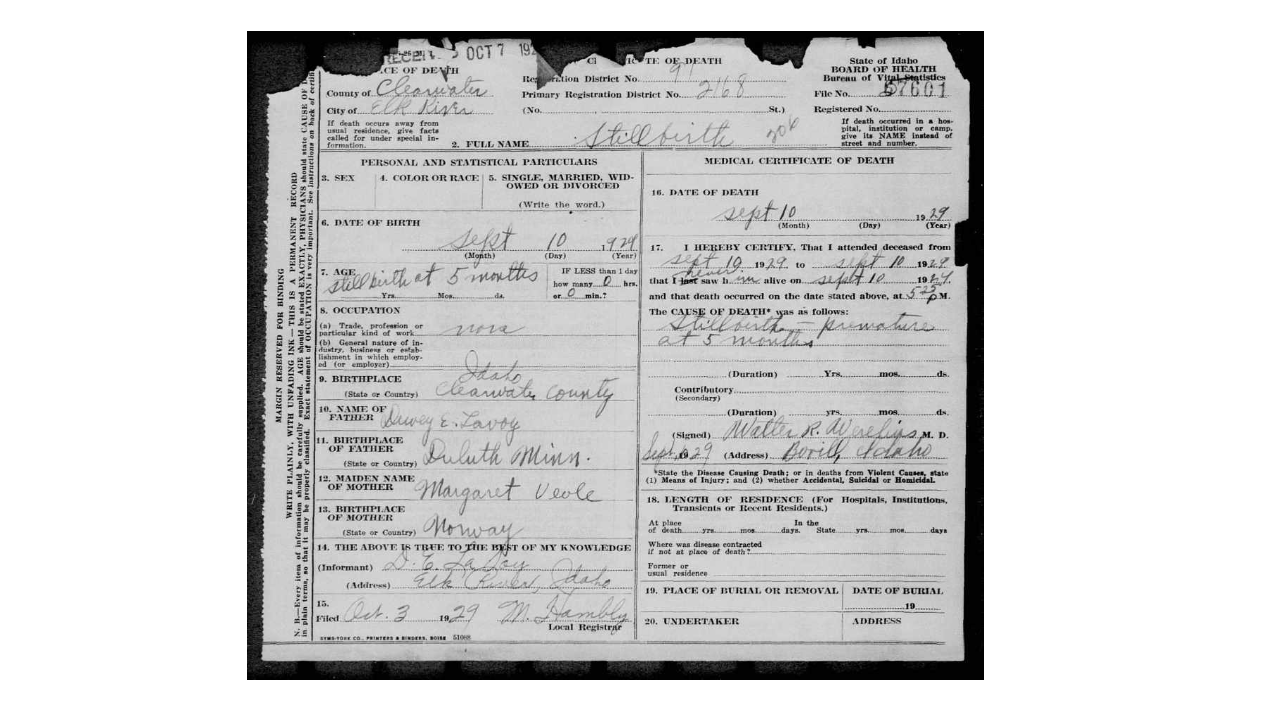 RECEIVED OCT 7 192
CERTIFICATE OF DEATH
PLACE OF DEATH
County of Clearwater
City of Elk River
If death occurs away from
usual residence, give facts
called for under special in-
formation.
Registration District No. 91
Primary Registration District No. 2168
(No. St.)
2. FULL NAME Stillbirth 206
State of Idaho
BOARD OF HEALTH
Bureau of Vital Statistics
File No. 57601
Registered No.
If death occurred in a hos-
pital, institution or camp,
give its NAME instead of
street and number.
MARGIN RESERVED FOR BINDING
WRITE PLAINLY, WITH UNFADING INK—THIS IS A PERMANENT RECORD
N. B.—Every item of information should be carefully supplied. AGE should be stated EXACTLY, PHYSICIANS should state CAUSE OF
in plain terms, so that it may be properly classified. Exact statement of OCCUPATION is very important. See instructions on back of certifi
PERSONAL AND STATISTICAL PARTICULARS
3. SEX
4. COLOR OR RACE
5. SINGLE, MARRIED, WID-
OWED OR DIVORCED
(Write the word.)
6. DATE OF BIRTH
Sept 10 1929
(Month) (Day) (Year)
7. AGE
stillbirth at 5 months
Yrs. Mos. ds.
IF LESS than 1 day
how many 0 hrs.
or 0 min.?
8. OCCUPATION
(a) Trade, profession or
particular kind of work
(b) General nature of in-
dustry, business or estab-
lishment in which employ-
ed (or employer)
9. BIRTHPLACE Idaho
(State or Country) Clearwater County
10. NAME OF
FATHER Dewey E. Lavoy
11. BIRTHPLACE
OF FATHER
(State or Country) Duluth Minn.
12. MAIDEN NAME
OF MOTHER Margaret
13. BIRTHPLACE
OF MOTHER
(State or Country) Norway
14. THE ABOVE IS TRUE TO THE BEST OF MY KNOWLEDGE
(Informant) D. E. LaVoy
(Address) Elk River, Idaho
15.
Filed Oct. 3 1929 M. Hambly
Local Registrar
SYMS-YORK CO., PRINTERS & BINDERS, BOISE 51068
MEDICAL CERTIFICATE OF DEATH
16. DATE OF DEATH
Sept 10 1929
(Month) (Day) (Year)
17. I HEREBY CERTIFY, That I attended deceased from
Sept 10 1929 to Sept 10 1929
never
that I last saw him alive on Sept 10 1929
and that death occurred on the date stated above, at P M.
The CAUSE OF DEATH* was as follows:
Stillbirth — premature
at 5 months
(Duration) Yrs. mos. ds.
Contributory
(Secondary)
(Duration) yrs. mos. ds.
(Signed) Walter R. M. D.
Sept 1929 (Address) Bovill, Idaho
*State the Disease Causing Death; or in deaths from Violent Causes, state
(1) Means of Injury; and (2) whether Accidental, Suicidal or Homicidal.
18. LENGTH OF RESIDENCE (For Hospitals, Institutions,
Transients or Recent Residents.)
At place In the
of death yrs. mos. days. State yrs. mos. days
Where was disease contracted
if not at place of death?
Former or
usual residence
19. PLACE OF BURIAL OR REMOVAL
DATE OF BURIAL
19
20. UNDERTAKER
ADDRESS